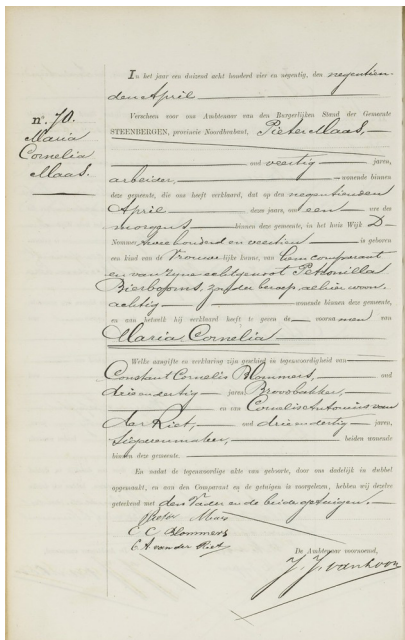 In het jaar een duizend acht honderd vier en negentig, den negentien-
den April
Verscheen voor ons Ambtenaar van den Burgerlijken Stand der Gemeente
STEENBERGEN, provincie Noordbrabant, Pieter Maas,
oud veertig jaren,
arbeider, wonende binnen
deze gemeente, die ons heeft verklaard, dat op den negentienden
April dezes jaars, ten een ure des
morgens binnen deze gemeente, in het huis Wijk D
Nummer twee honderd en veertien is geboren
een kind van de Vrouwelijke kunne, van hem comparant
en van zijne echtgenoot Petronilla
Bierbooms, zonder beroep, alhier woon-
achtig wonende binnen deze gemeente,
en aan hetwelk hij verklaard heeft te geven de voornamen van
Maria Cornelia
Welke aangifte en verklaring zijn geschied in tegenwoordigheid van
Constant Cornelis Blommers, oud
drie en dertig jaren, Broodbakker,
en van Cornelis Antonius van
der Riet, oud drie en dertig jaren,
Sigarenmaker, beiden wonende
binnen deze gemeente.
En nadat de tegenwoordige akte van geboorte, door ons dadelijk in dubbel
opgemaakt, en aan den Comparant en de getuigen is voorgelezen, hebben wij dezelve
geteekend met den Vader en de beide getuigen.
Pieter Maas
C C Blommers
C A van der Riet
De Ambtenaar voornoemd,
J. J. van Loon
n°. 70.
Maria
Cornelia
Maas.